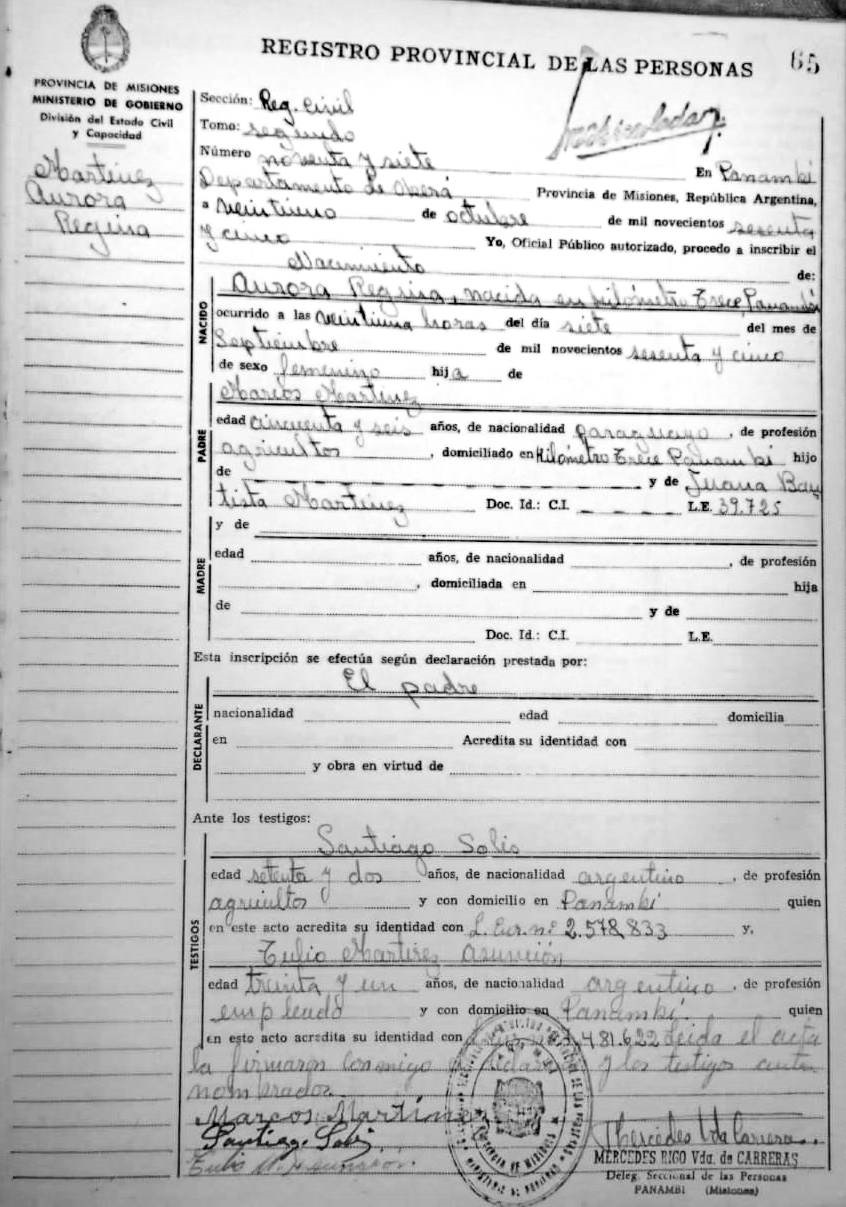 REGISTRO PROVINCIAL DE LAS PERSONAS
65
PROVINCIA DE MISIONES
MINISTERIO DE GOBIERNO
División del Estado Civil
y Capacidad
Martinez
Aurora
Regina
Sección: Reg. Civil
Tomo: segundo
Número noventa y siete En Panambí
Departamento de Oberá Provincia de Misiones, República Argentina,
a veintiuno de octubre de mil novecientos sesenta
y cinco Yo, Oficial Público autorizado, procedo a inscribir el
Nacimiento de:
NACIDO
Aurora Regina, nacida en kilómetro Trece, Panambí
ocurrido a las veintiuna horas del día siete del mes de
Septiembre de mil novecientos sesenta y cinco
de sexo femenino hija de
PADRE
Marcos Martinez
edad cincuenta y seis años, de nacionalidad paraguayo, de profesión
agricultor, domiciliado en Kilómetro Trece Panambí hijo
de y de Juana Bau
tista Martinez Doc. Id.: C.I. L.E. 39.725
MADRE
y de
edad años, de nacionalidad , de profesión
, domiciliada en hija
de y de
Doc. Id.: C.I. L.E.
Esta inscripción se efectúa según declaración prestada por:
El padre
DECLARANTE
nacionalidad edad domicilia
en Acredita su identidad con
y obra en virtud de
Ante los testigos:
TESTIGOS
Santiago Solis
edad setenta y dos años, de nacionalidad argentino, de profesión
agricultor y con domicilio en Panambí quien
en este acto acredita su identidad con L. Enr. nº 2.578,833 y,
Tulio Martirez Asunción
edad treinta y un años, de nacionalidad argentino, de profesión
empleado y con domicilio en Panambí. quien
en esto acto acredita su identidad con 481.622 Leida el acta
la firmaron conmigo y los testigos ante
nombrados.
Marcos Martínez
Santiago Solis
Mercedes Vda Carreras.
MERCEDES RIGO Vda. de CARRERAS
Deleg. Seccional de las Personas
PANAMBI (Misiones)